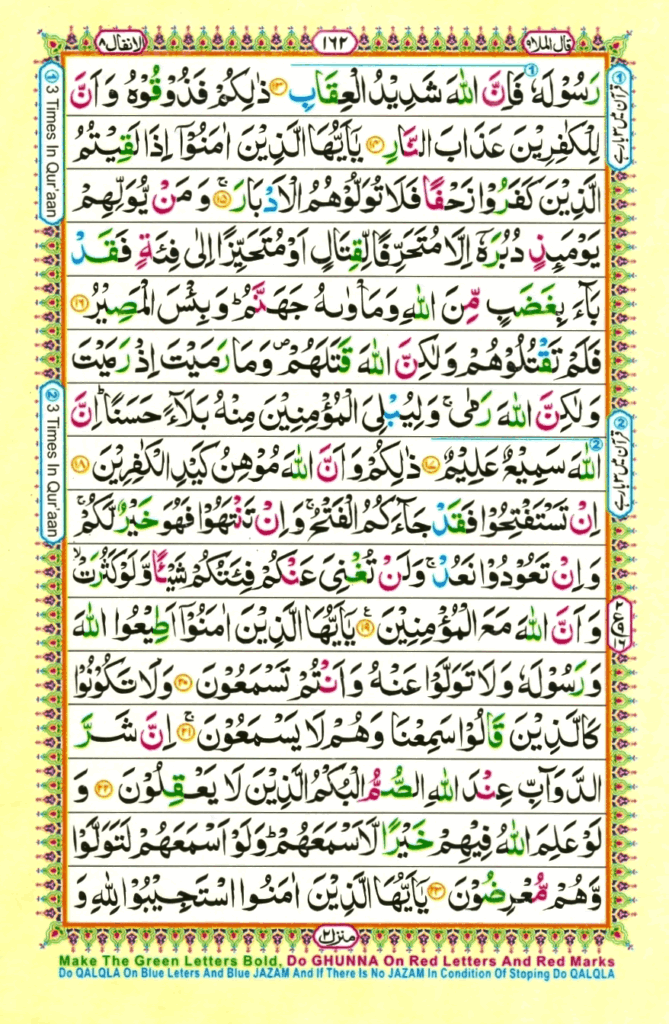 الانفال ۸
۱۶۲
قال الملا ۹
رَسُوۡلَهٗ فَاِنَّ اللّٰهَ شَدِيۡدُ الۡعِقَابِ ﴿۱۳﴾ ذٰلِكُمۡ فَذُوۡقُوۡهُ وَاَنَّ
لِلۡكٰفِرِيۡنَ عَذَابَ النَّارِ ﴿۱۴﴾ يٰۤاَيُّهَا الَّذِيۡنَ اٰمَنُوۡۤا اِذَا لَقِيۡتُمُ
الَّذِيۡنَ كَفَرُوۡا زَحۡفًا فَلَا تُوَلُّوۡهُمُ الۡاَدۡبَارَ ﴿۱۵﴾ۚ وَمَنۡ يُّوَلِّهِمۡ
يَوۡمَٮِٕذٍ دُبُرَهٗۤ اِلَّا مُتَحَرِّفًا لِّقِتَالٍ اَوۡ مُتَحَيِّزًا اِلٰى فِئَةٍ فَقَدۡ
بَآءَ بِغَضَبٍ مِّنَ اللّٰهِ وَمَاۡوٰٮهُ جَهَنَّمُؕ وَبِئۡسَ الۡمَصِيۡرُ ﴿۱۶﴾
فَلَمۡ تَقۡتُلُوۡهُمۡ وَلٰكِنَّ اللّٰهَ قَتَلَهُم۪ۡ وَمَا رَمَيۡتَ اِذۡ رَمَيۡتَ
وَلٰكِنَّ اللّٰهَ رَمٰىۚ وَلِيُبۡلِىَ الۡمُؤۡمِنِيۡنَ مِنۡهُ بَلَآءً حَسَنًاؕ اِنَّ
اللّٰهَ سَمِيۡعٌ عَلِيۡمٌ ﴿۱۷﴾ ذٰلِكُمۡ وَاَنَّ اللّٰهَ مُوۡهِنُ كَيۡدِ الۡكٰفِرِيۡنَ ﴿۱۸﴾
اِنۡ تَسۡتَفۡتِحُوۡا فَقَدۡ جَآءَكُمُ الۡفَتۡحُۚ وَاِنۡ تَنۡتَهُوۡا فَهُوَ خَيۡرٌ لَّكُمۡۚ
وَاِنۡ تَعُوۡدُوۡا نَعُدۡۚ وَلَنۡ تُغۡنِىَ عَنۡكُمۡ فِئَتُكُمۡ شَيۡـًٔـا وَّلَوۡ كَثُرَتۡۙ
وَاَنَّ اللّٰهَ مَعَ الۡمُؤۡمِنِيۡنَ ﴿۱۹﴾ يٰۤاَيُّهَا الَّذِيۡنَ اٰمَنُوۡۤا اَطِيۡعُوا اللّٰهَ
وَرَسُوۡلَهٗ وَلَا تَوَلَّوۡا عَنۡهُ وَاَنۡتُمۡ تَسۡمَعُوۡنَ ﴿۲۰﴾ وَلَا تَكُوۡنُوۡا
كَالَّذِيۡنَ قَالُوۡا سَمِعۡنَا وَهُمۡ لَا يَسۡمَعُوۡنَ ﴿۲۱﴾ۚ اِنَّ شَرَّ
الدَّوَآبِّ عِنۡدَ اللّٰهِ الصُّمُّ الۡبُكۡمُ الَّذِيۡنَ لَا يَعۡقِلُوۡنَ ﴿۲۲﴾ وَ
لَوۡ عَلِمَ اللّٰهُ فِيۡهِمۡ خَيۡرًا لَّاَسۡمَعَهُمۡؕ وَلَوۡ اَسۡمَعَهُمۡ لَتَوَلَّوۡا
وَّهُمۡ مُّعۡرِضُوۡنَ ﴿۲۳﴾ يٰۤاَيُّهَا الَّذِيۡنَ اٰمَنُوا اسۡتَجِيۡبُوۡا لِلّٰهِ وَ
① 3 Times In Qur'aan
② 3 Times In Qur'aan
① قرآن میں ۳ بار ہے
② قرآن میں ۳ بار ہے
منزل ۲
Make The Green Letters Bold, Do GHUNNA On Red Letters And Red Marks
Do QALQLA On Blue Leters And Blue JAZAM And If There Is No JAZAM In Condition Of Stoping Do QALQLA